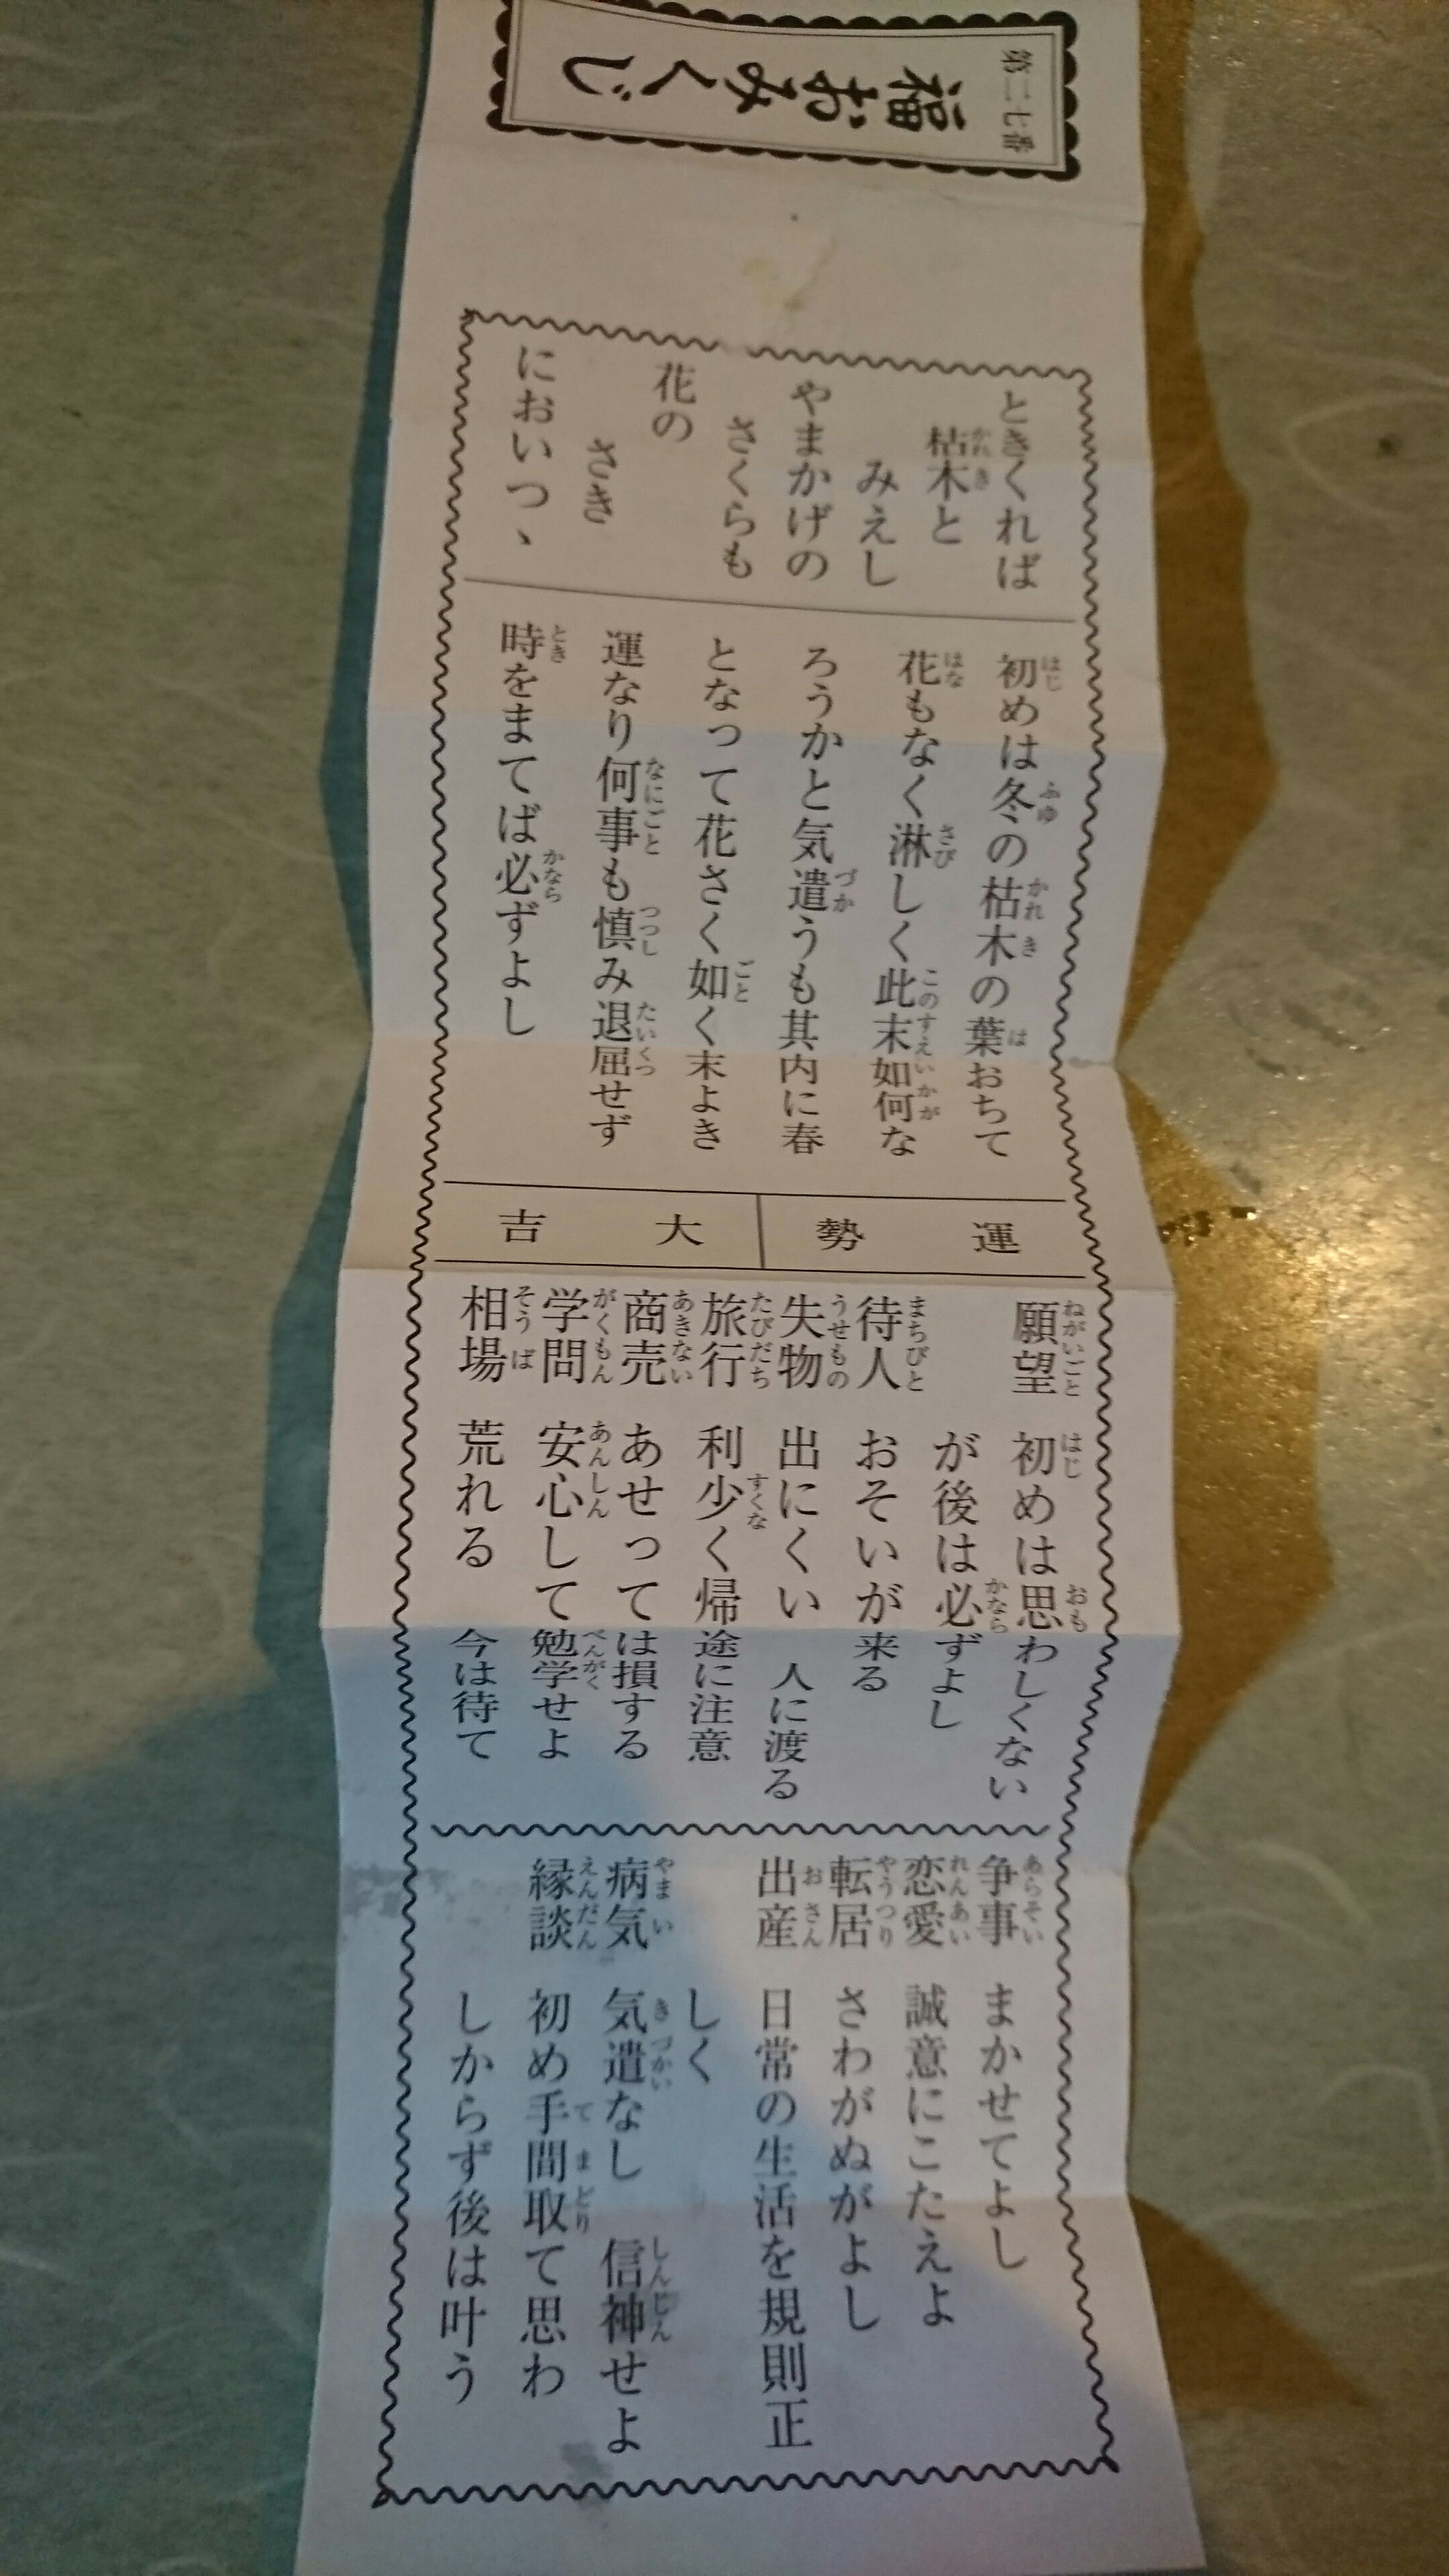 第二七番
福おみくじ
ときくれば
枯木と
みえし
やまかげの
さくらも
花の
さき
においつゝ
初めは冬の枯木の葉おちて
花もなく淋しく此末如何な
ろうかと気遣うも其内に春
となって花さく如く末よき
運なり何事も慎み退屈せず
時をまてば必ずよし
運勢 大吉
願望 初めは思わしくない
が後は必ずよし
待人 おそいが来る
失物 出にくい 人に渡る
旅行 利少く帰途に注意
商売 あせっては損する
学問 安心して勉学せよ
相場 荒れる 今は待て
争事 まかせてよし
恋愛 誠意にこたえよ
転居 さわがぬがよし
出産 日常の生活を規則正
しく
病気 気遣なし 信神せよ
縁談 初め手間取て思わ
しからず後は叶う